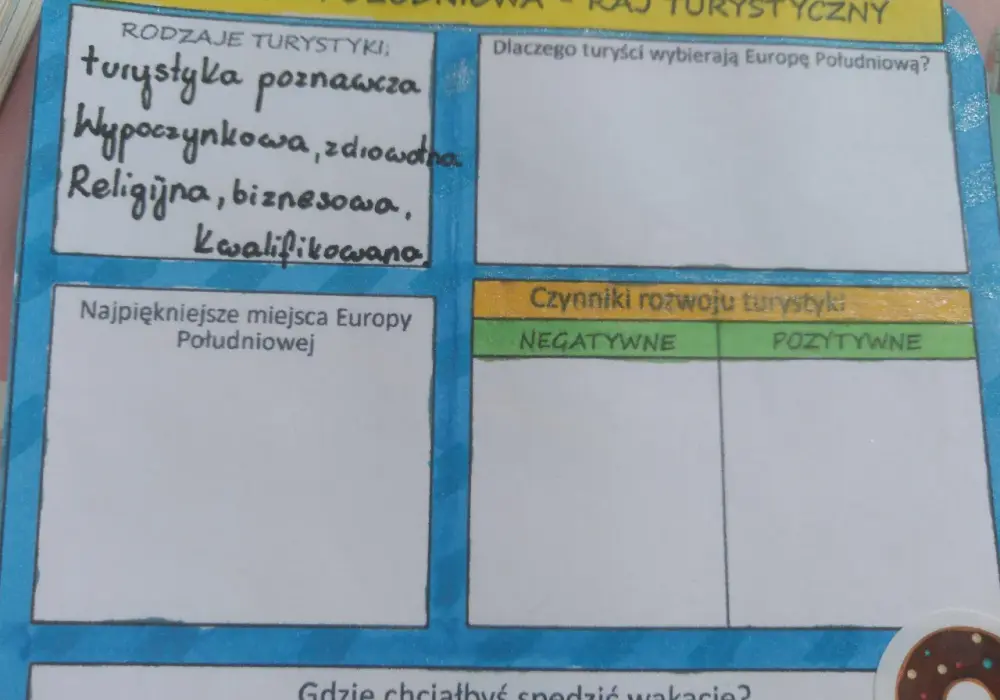 POŁUDNIOWA - RAJ TURYSTYCZNY
RODZAJE TURYSTYKI:
turystyka poznawcza
Wypoczynkowa, zdrowotna
Religijna, biznesowa,
kwalifikowana,
Dlaczego turyści wybierają Europę Południową?
Najpiękniejsze miejsca Europy
Południowej
Czynniki rozwoju turystyki
NEGATYWNE POZYTYWNE
Gdzie chciałbyś spędzić wakacje?